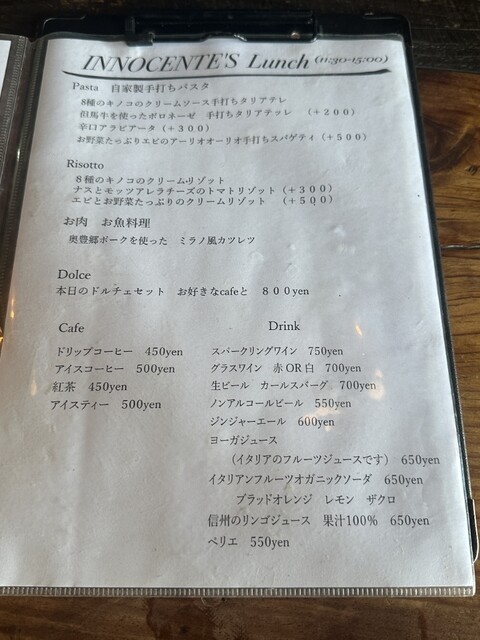 INNOCENTE'S Lunch (11:30-15:00)
Pasta 自家製手打ちパスタ
8種のキノコのクリームソース手打ちタリアテレ
但馬牛を使ったボロネーゼ 手打ちタリアテッレ (+200)
辛口アラビアータ(+300)
お野菜たっぷりエビのアーリオオーリオ手打ちスパゲティ(+500)
Risotto
8種のキノコのクリームリゾット
ナスとモッツアレラチーズのトマトリゾット(+300)
エビとお野菜たっぷりのクリームリゾット (+500)
お肉 お魚料理
奥豊郷ポークを使った ミラノ風カツレツ
Dolce
本日のドルチェセット お好きなcafeと 800yen
Cafe
ドリップコーヒー 450yen
アイスコーヒー 500yen
紅茶 450yen
アイスティー 500yen
Drink
スパークリングワイン 750yen
グラスワイン 赤OR白 700yen
生ビール カールスバーグ 700yen
ノンアルコールビール 550yen
ジンジャーエール 600yen
ヨーガジュース
(イタリアのフルーツジュースです) 650yen
イタリアンフルーツオガニックソーダ 650yen
ブラッドオレンジ レモン ザクロ
信州のリンゴジュース 果汁100% 650yen
ペリエ 550yen